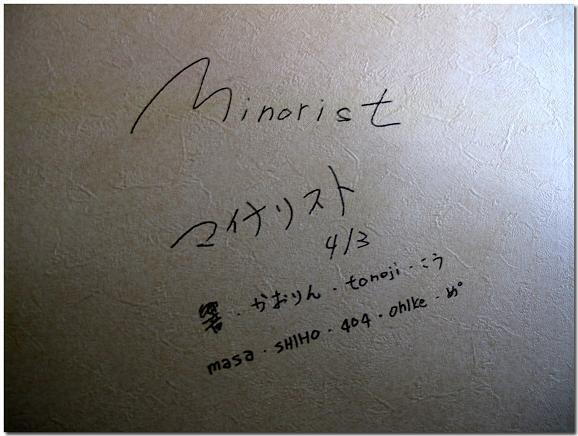 Minorist
マイナリスト
4/3
響・かおりん・tonoji・こう
masa・SHIHO・404・ohike・め°